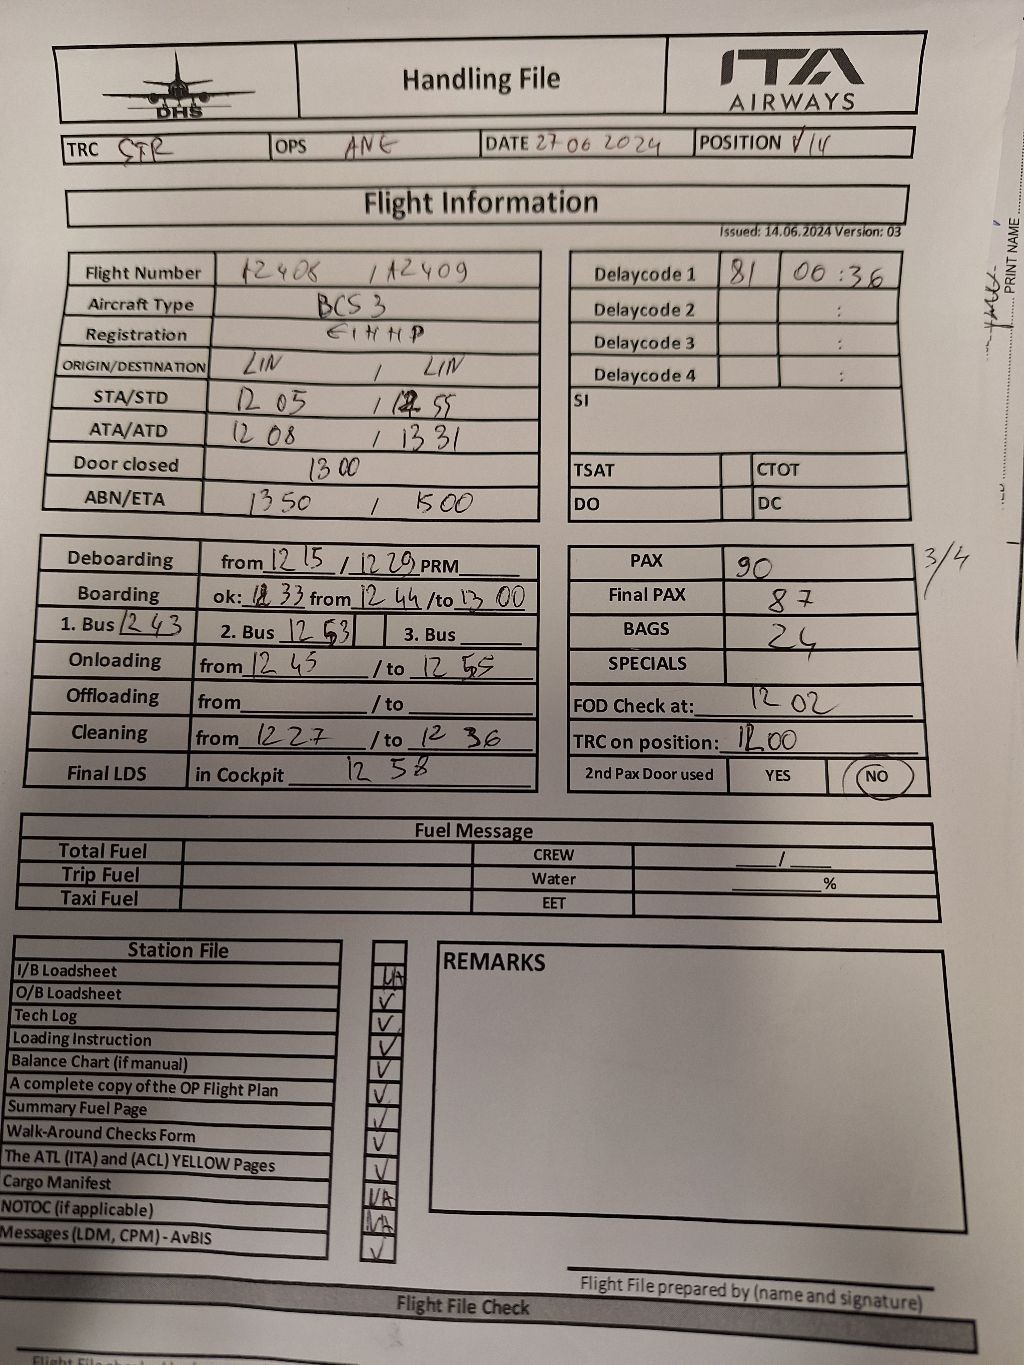 DHS
Handling File
ITA
AIRWAYS
TRC STR OPS ANE DATE 27 06 2024 POSITION V14
Flight Information
Issued: 14.06.2024 Version: 03
Flight Number AZ408 / AZ409
Aircraft Type BCS3
Registration EIHHP
ORIGIN/DESTINATION LIN / LIN
STA/STD 12 05 / 12 55
ATA/ATD 12 08 / 13 31
Door closed 13 00
ABN/ETA 13 50 / 15 00
Delaycode 1 81 00 : 36
Delaycode 2 :
Delaycode 3 :
Delaycode 4 :
SI
TSAT CTOT
DO DC
Deboarding from 12 15 / 12 29 PRM
Boarding ok: 12 33 from 12 44 /to 13 00
1. Bus 12 43 2. Bus 12 53 3. Bus
Onloading from 12 45 / to 12 55
Offloading from / to
Cleaning from 12 27 / to 12 36
Final LDS in Cockpit 12 58
PAX 90 3/4
Final PAX 87
BAGS 24
SPECIALS
FOD Check at: 12 02
TRC on position: 12 00
2nd Pax Door used YES NO
Fuel Message
Total Fuel CREW /
Trip Fuel Water %
Taxi Fuel EET
Station File
I/B Loadsheet NA
O/B Loadsheet ✓
Tech Log ✓
Loading Instruction ✓
Balance Chart (if manual) ✓
A complete copy of the OP Flight Plan ✓
Summary Fuel Page ✓
Walk-Around Checks Form ✓
The ATL (ITA) and (ACL) YELLOW Pages ✓
Cargo Manifest NA
NOTOC (if applicable) NA
Messages (LDM, CPM) - AvBIS ✓
REMARKS
Flight File prepared by (name and signature)
Flight File Check
PRINT NAME